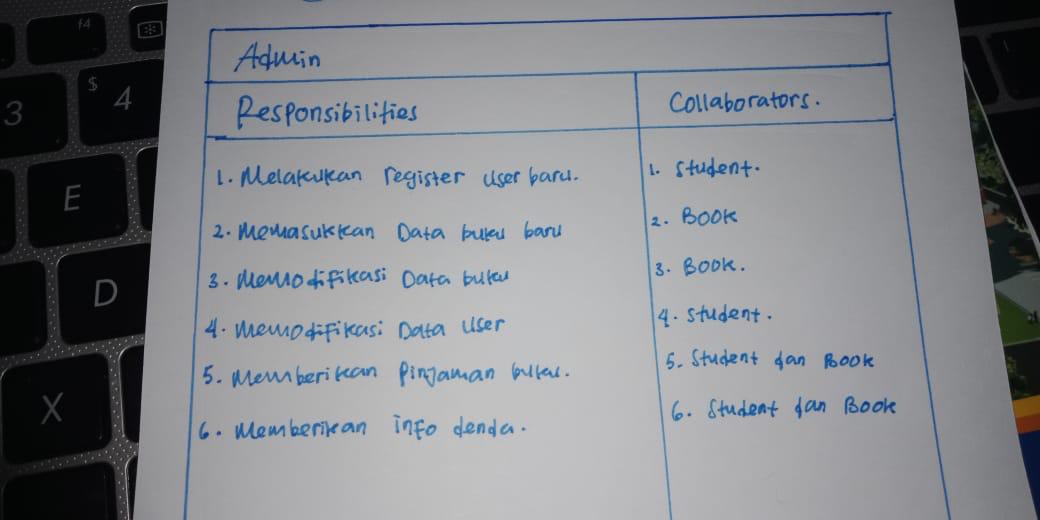 f4
3
$
4
E
D
X
Admin
Responsibilities
Collaborators.
1. Melakukan register user baru.
1. Student.
2. Memasukkan Data buku baru
2. Book
3. Memodifikasi Data buku
3. Book.
4. Memodifikasi Data User
4. Student.
5. Memberikan Pinjaman buku.
5. Student dan Book
6. Memberikan info denda.
6. Student dan Book